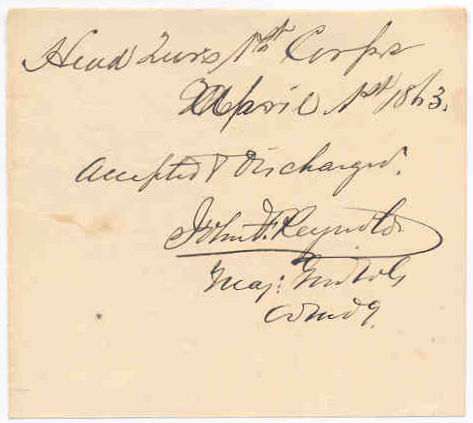 Head Qurs 1st Corps
April 1st 1863.
Accepted & Discharged.
John F. Reynolds
Maj: Genl Vols
Comdg.